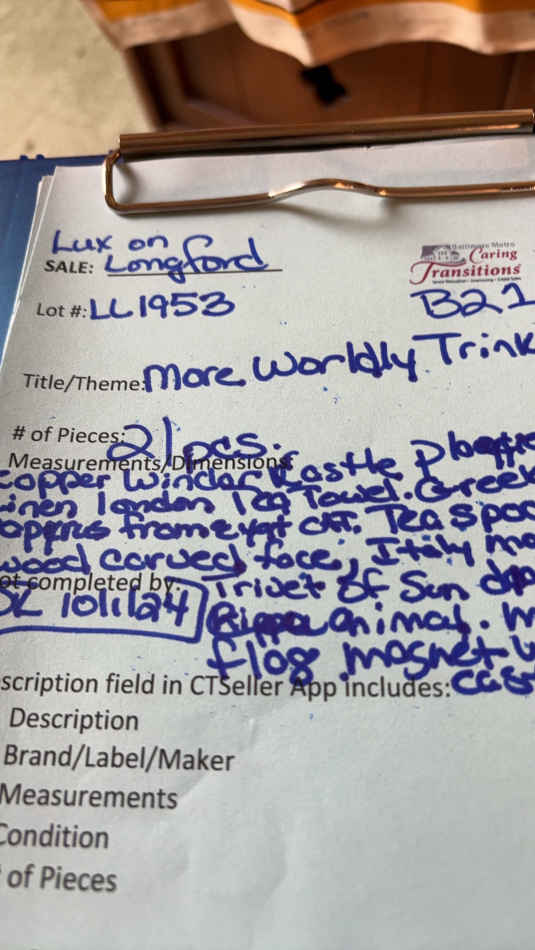 Lux on
SALE: Longford
Baltimore Metro
Caring
Transitions
Lot #: LL1953
B21
Title/Theme: More Worldly Trink
# of Pieces: 21 pcs.
Measurements/Dimensions:
copper Windor Kastle
Linen london Tea Towel. Greek
from egypt Tea Spoo
wood carved face, Italy
ot completed by: Trivet of Sun
SL 10/1/24
animal.
flag magnet
scription field in CTSeller App includes:
Description
Brand/Label/Maker
Measurements
Condition
of Pieces